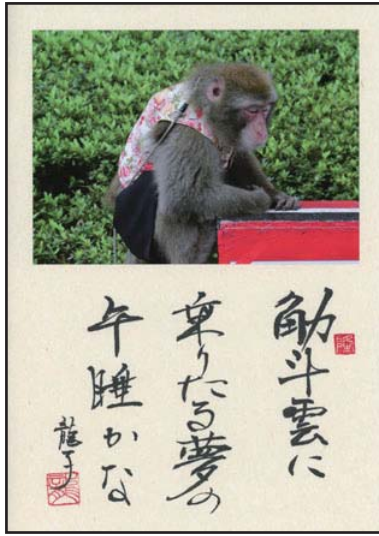 觔斗雲に
乗りたる夢の
午睡かな
龍子